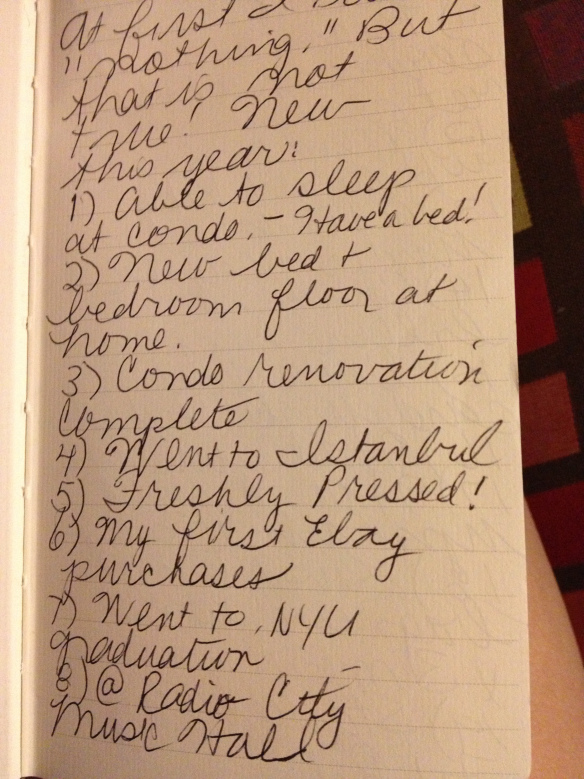 At first I
"nothing." But
that is not
true! New
this year:
1) Able to sleep
at condo. – Have a bed!
2) New bed +
bedroom floor at
home.
3) Condo renovation
complete
4) Went to Istanbul
5) Freshly Pressed!
6) My first Ebay
purchases
7) Went to NYU
graduation
8) @ Radio City
Music Hall